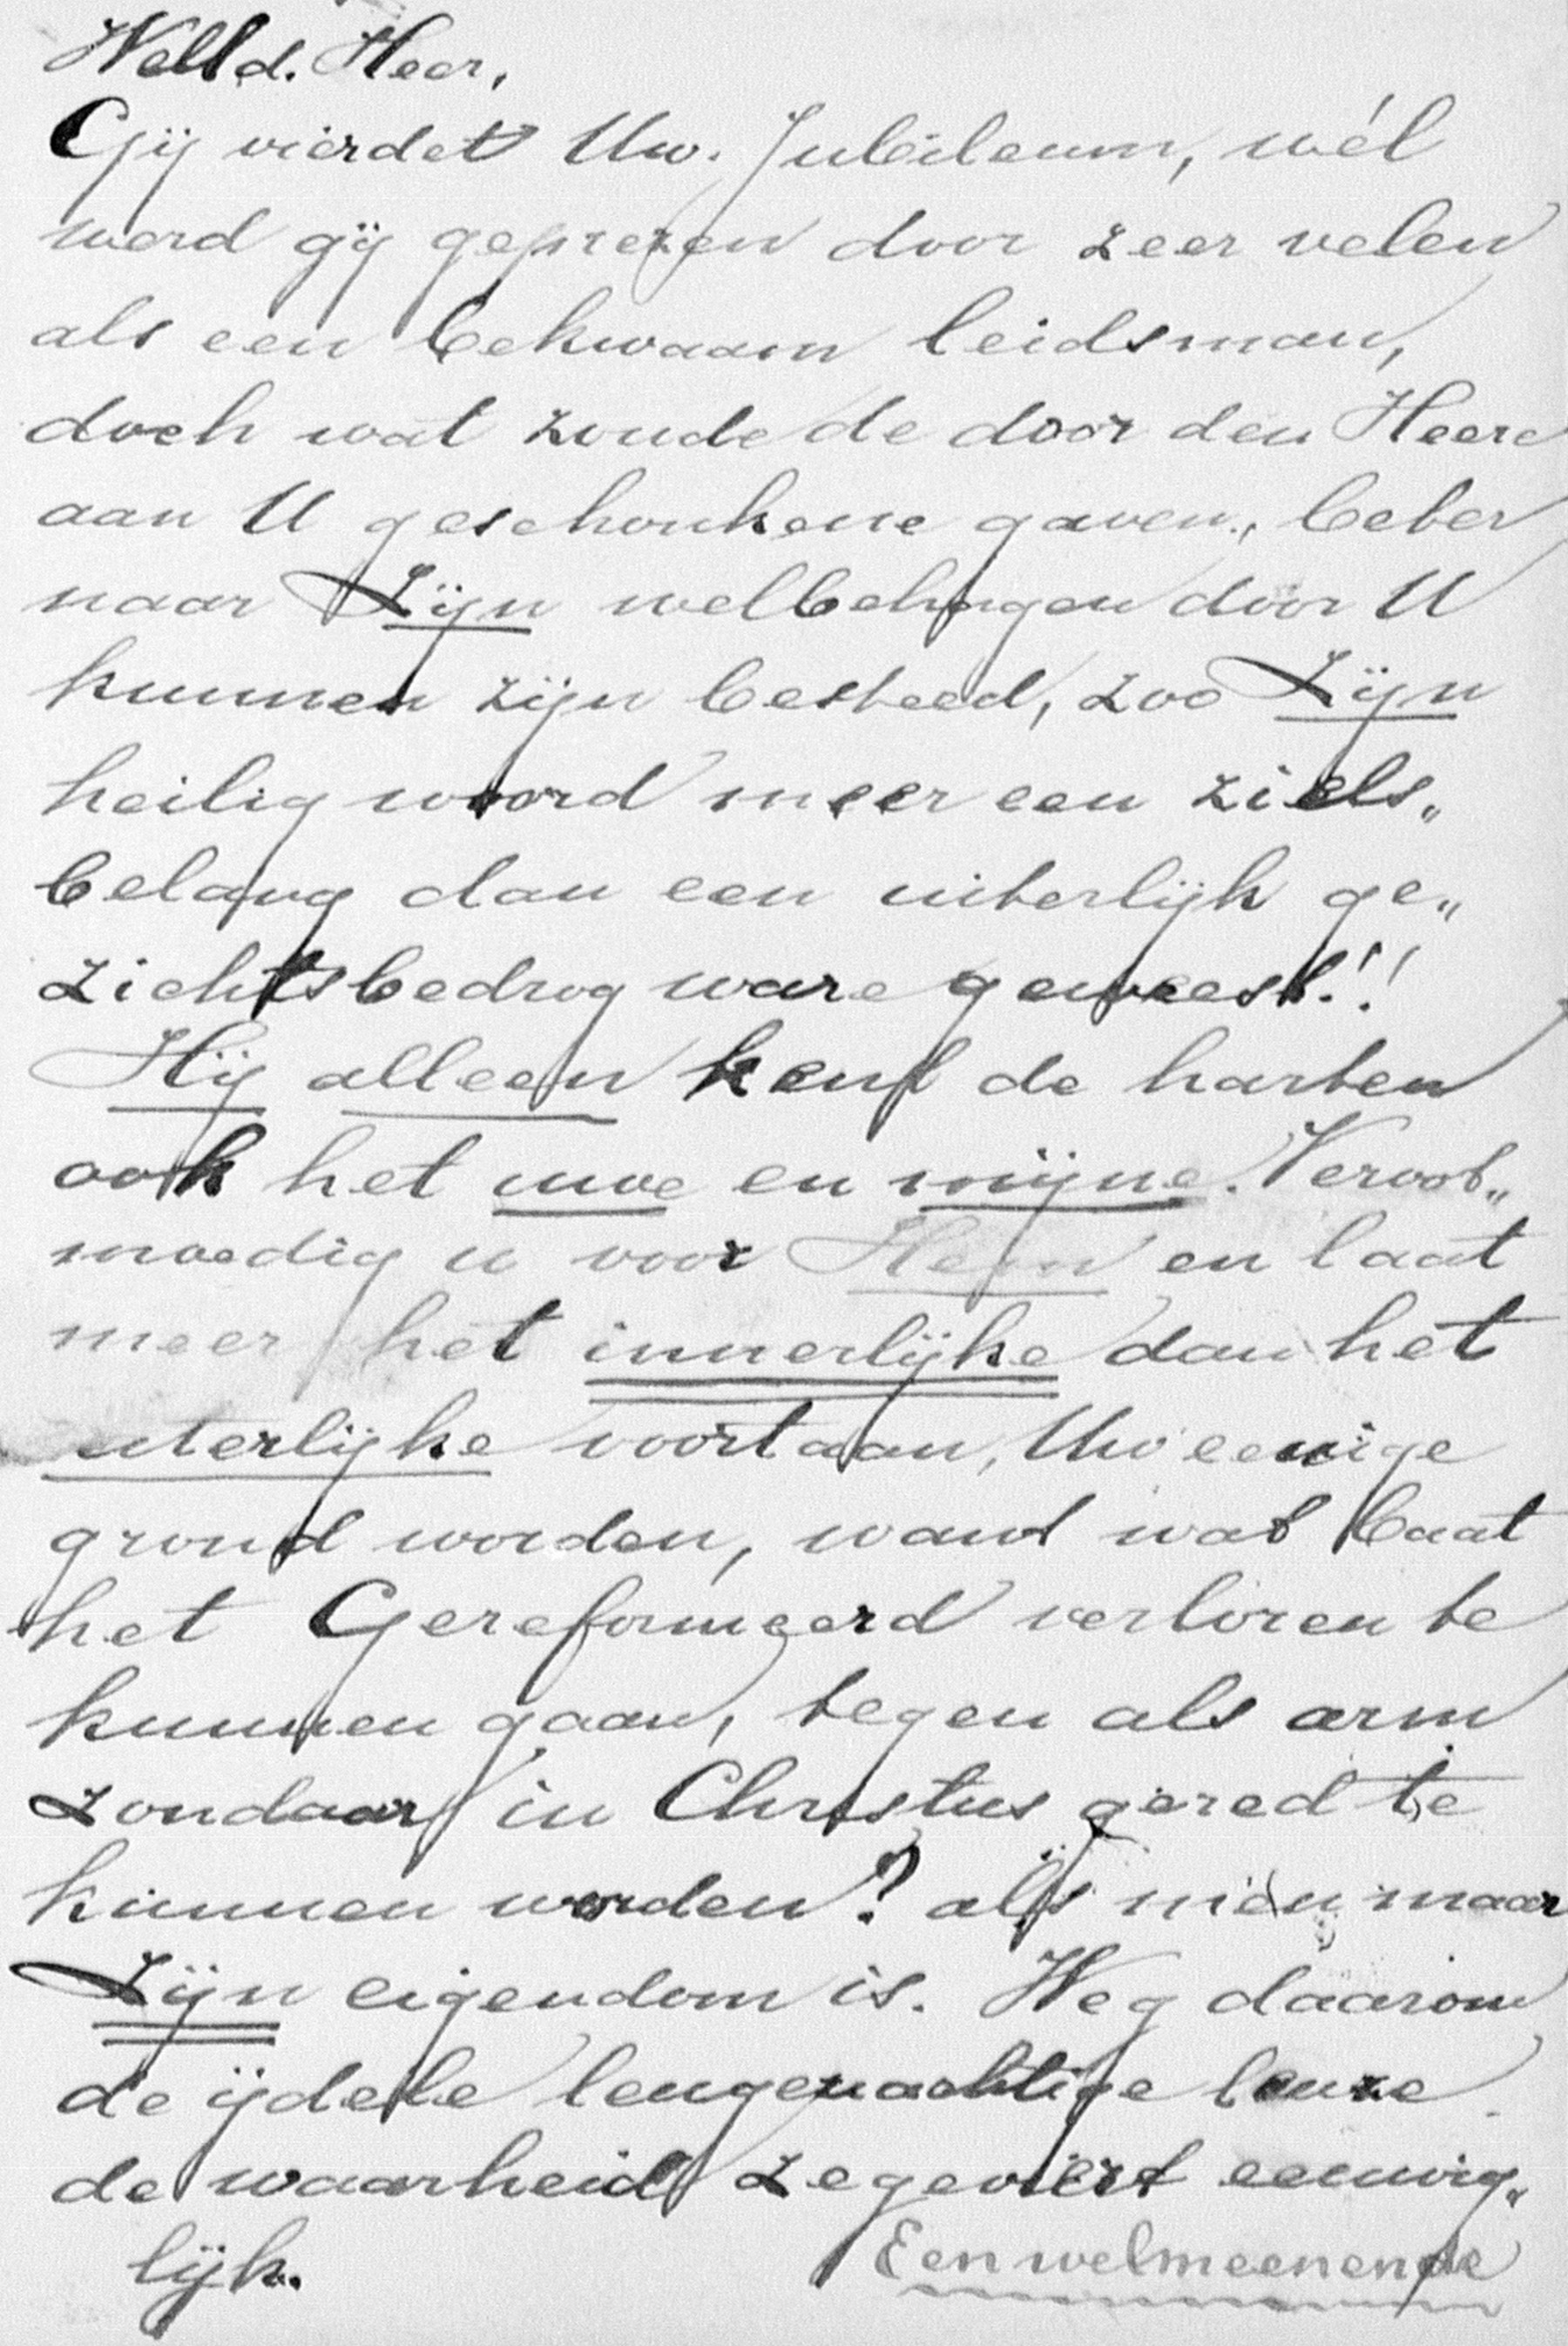 WelEd. Heer,
Gij vierdet Uw. Jubileum, wél
werd gij geprezen door zeer velen
als een bekwaam leidsman,
doch wat zoude de door den Heere
aan U geschonkene gaven, beter
naar Zijn welbehagen door U
kunnen zijn besteed, zoo Zijn
heilig woord meer een ziels„
belang dan een uiterlijk ge„
zichtsbedrog ware geweest!!
Hij alleen kent de harten
ook het uwe en mijne. Veroot„
moedig u voor Hem en laat
meer het innerlijke dan het
uterlijke voortaan, Uw eenige
grond worden, want wat baat
het Gereformeerd verloren te
kunnen gaan, tegen als arm
zondaar in Christus gered te
kunnen worden? als men maar
Zijn eigendom is. Weg daarom
de ijdele leugenachtige leuze
de waarheid zegeviert eeuwig„
lijk.
Een welmeenende